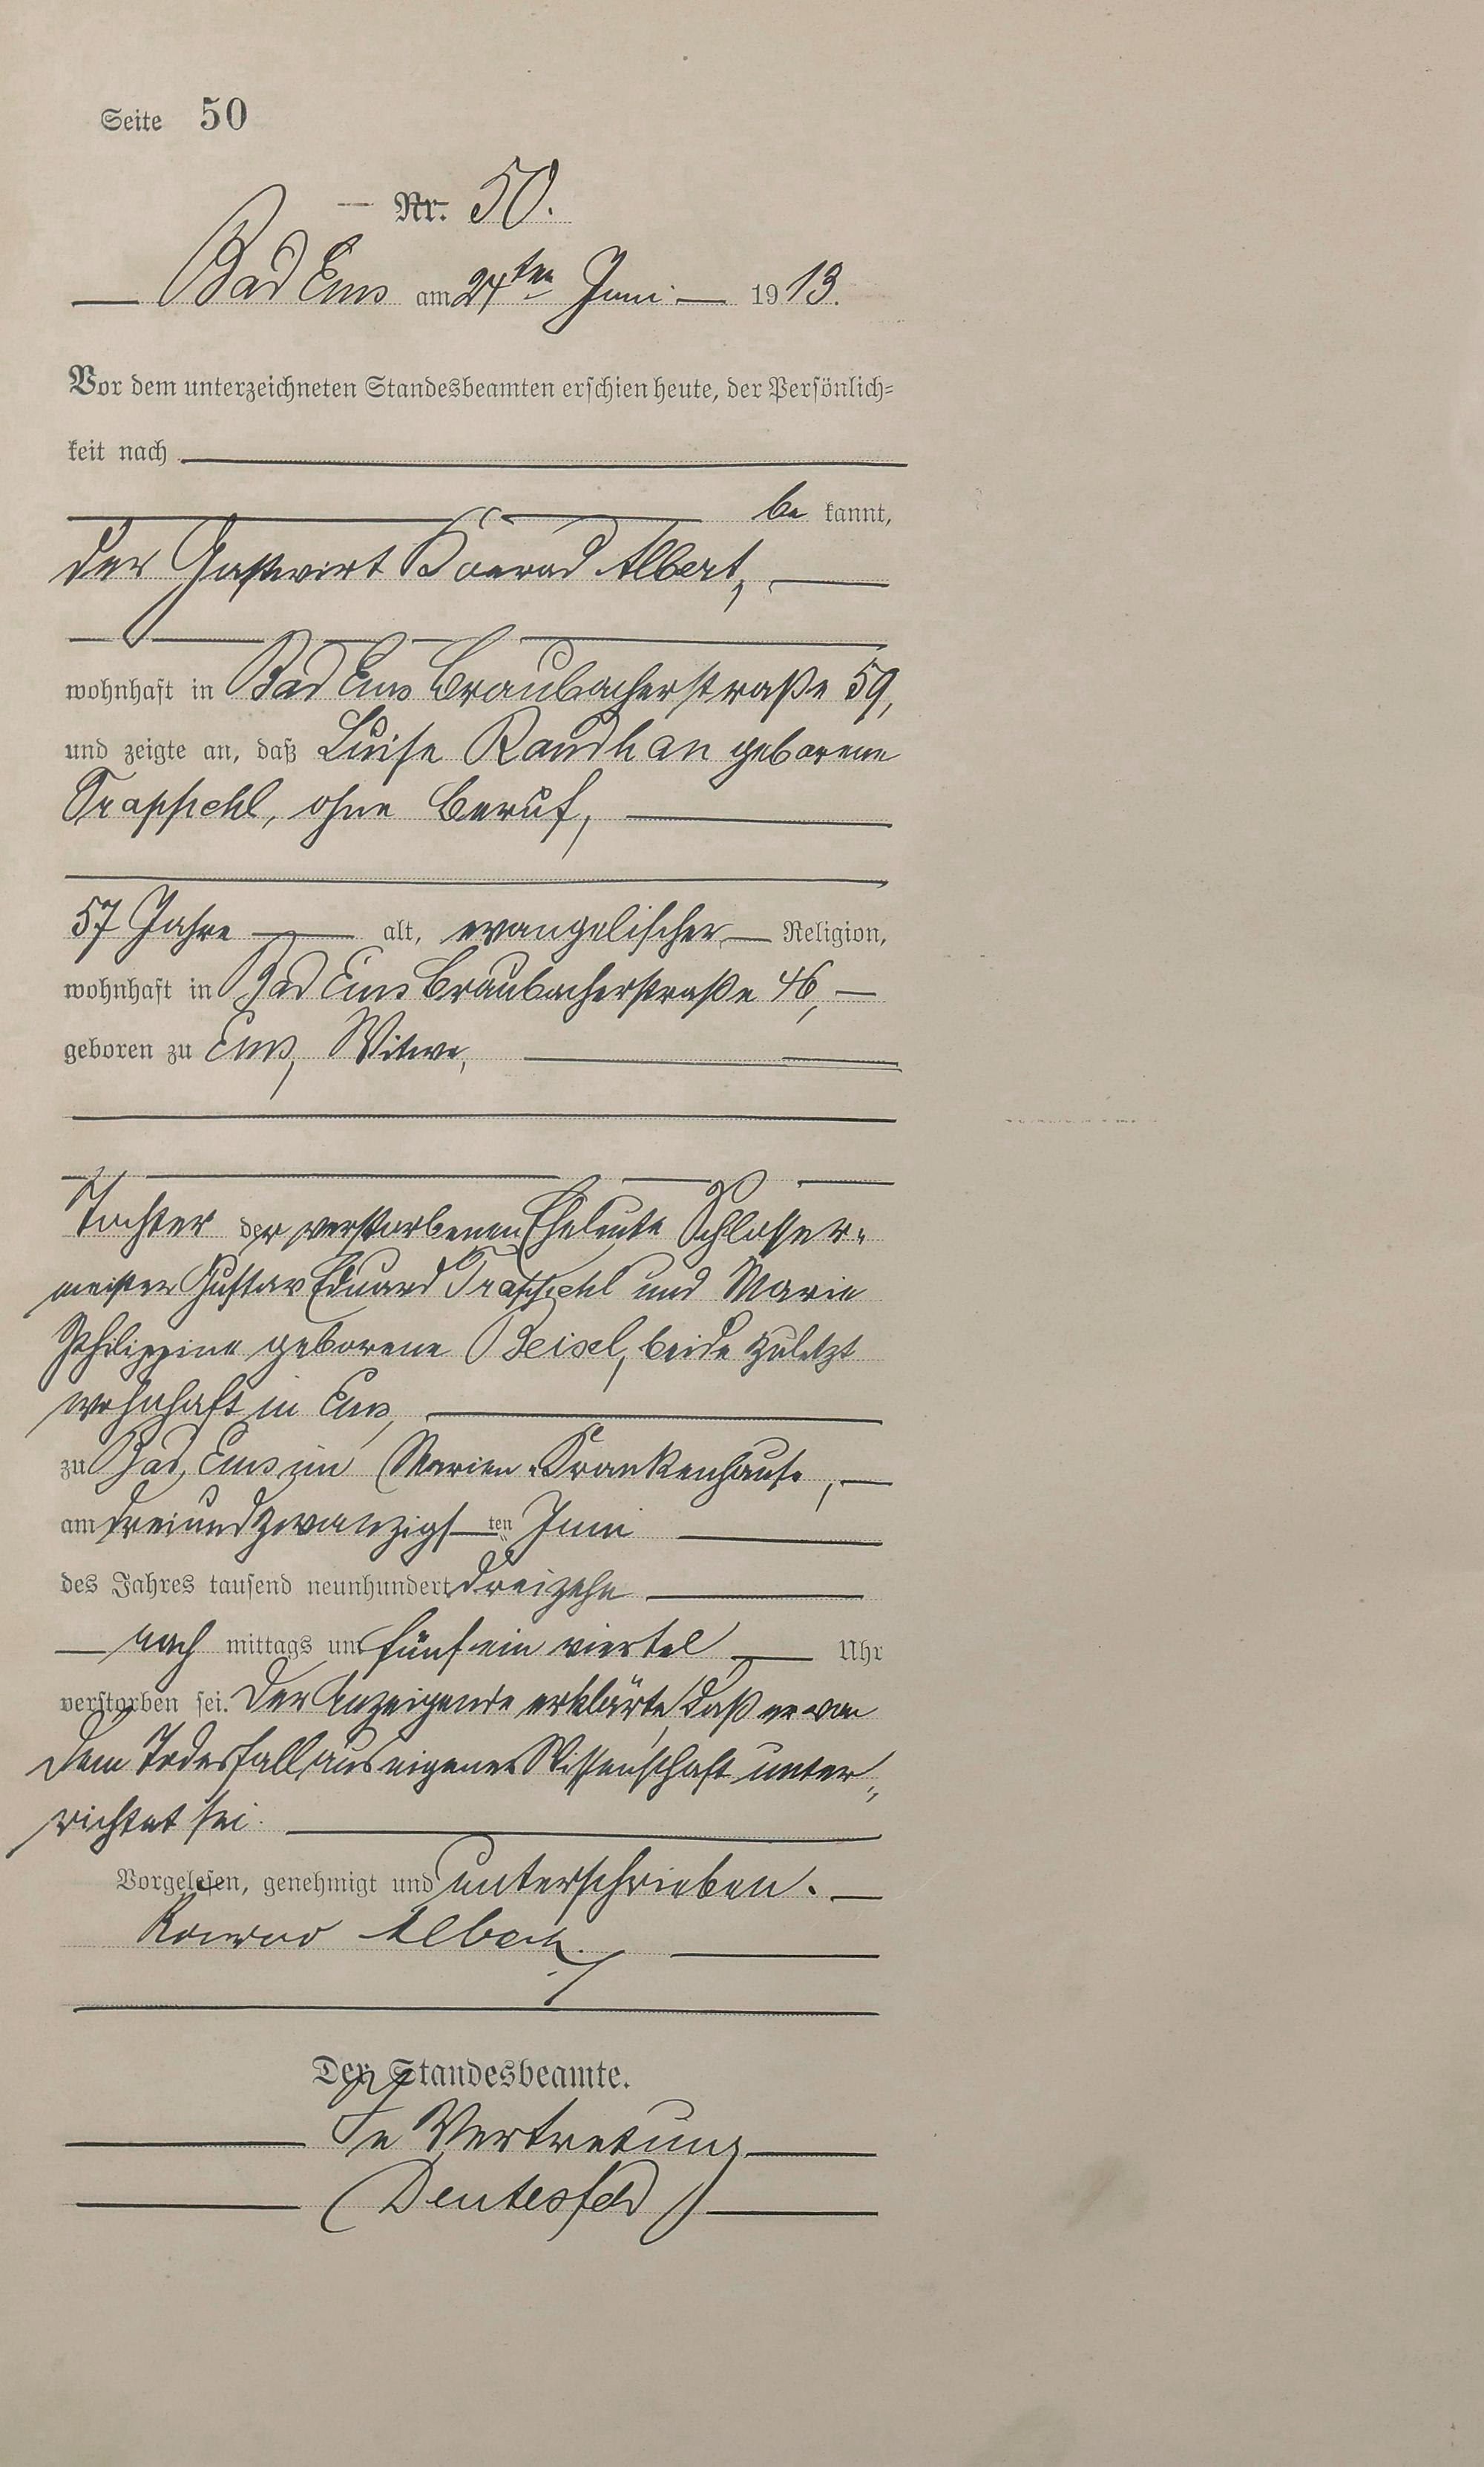 Seite 50
Nr. 50.
Bad Ems am 24ten Juni 1913.
Vor dem unterzeichneten Standesbeamten erschien heute, der Persönlich=
keit nach
be kannt,
der Gastwirt Konrad Albert,
wohnhaft in Bad Ems Braubacherstraße 59,
und zeigte an, daß Luise Raudhan geborene
Trapphehl, ohne Beruf,
57 Jahre alt, evangelischer Religion,
wohnhaft in Bad Ems Braubacherstraße 46,
geboren zu Ems, Witwe,
Tochter der verstorbenen Eheleute Schlosser-
meister Gustav Eduard und Marie
Philippine geborene Beisel, beide zuletzt
wohnhaft in Ems,
zu Bad Ems im Marien-Krankenhause,
am dreiundzwanzigsten Juni
des Jahres tausend neunhundert dreizehn
nach mittags um fünf ein viertel Uhr
verstorben sei. Der Anzeigende erklärte, daß er von
dem Todesfall aus eigener Wissenschaft unter-
richtet sei.
Vorgelesen, genehmigt und unterschrieben.
Konrad Albert.
Der Standesbeamte.
In Vertretung